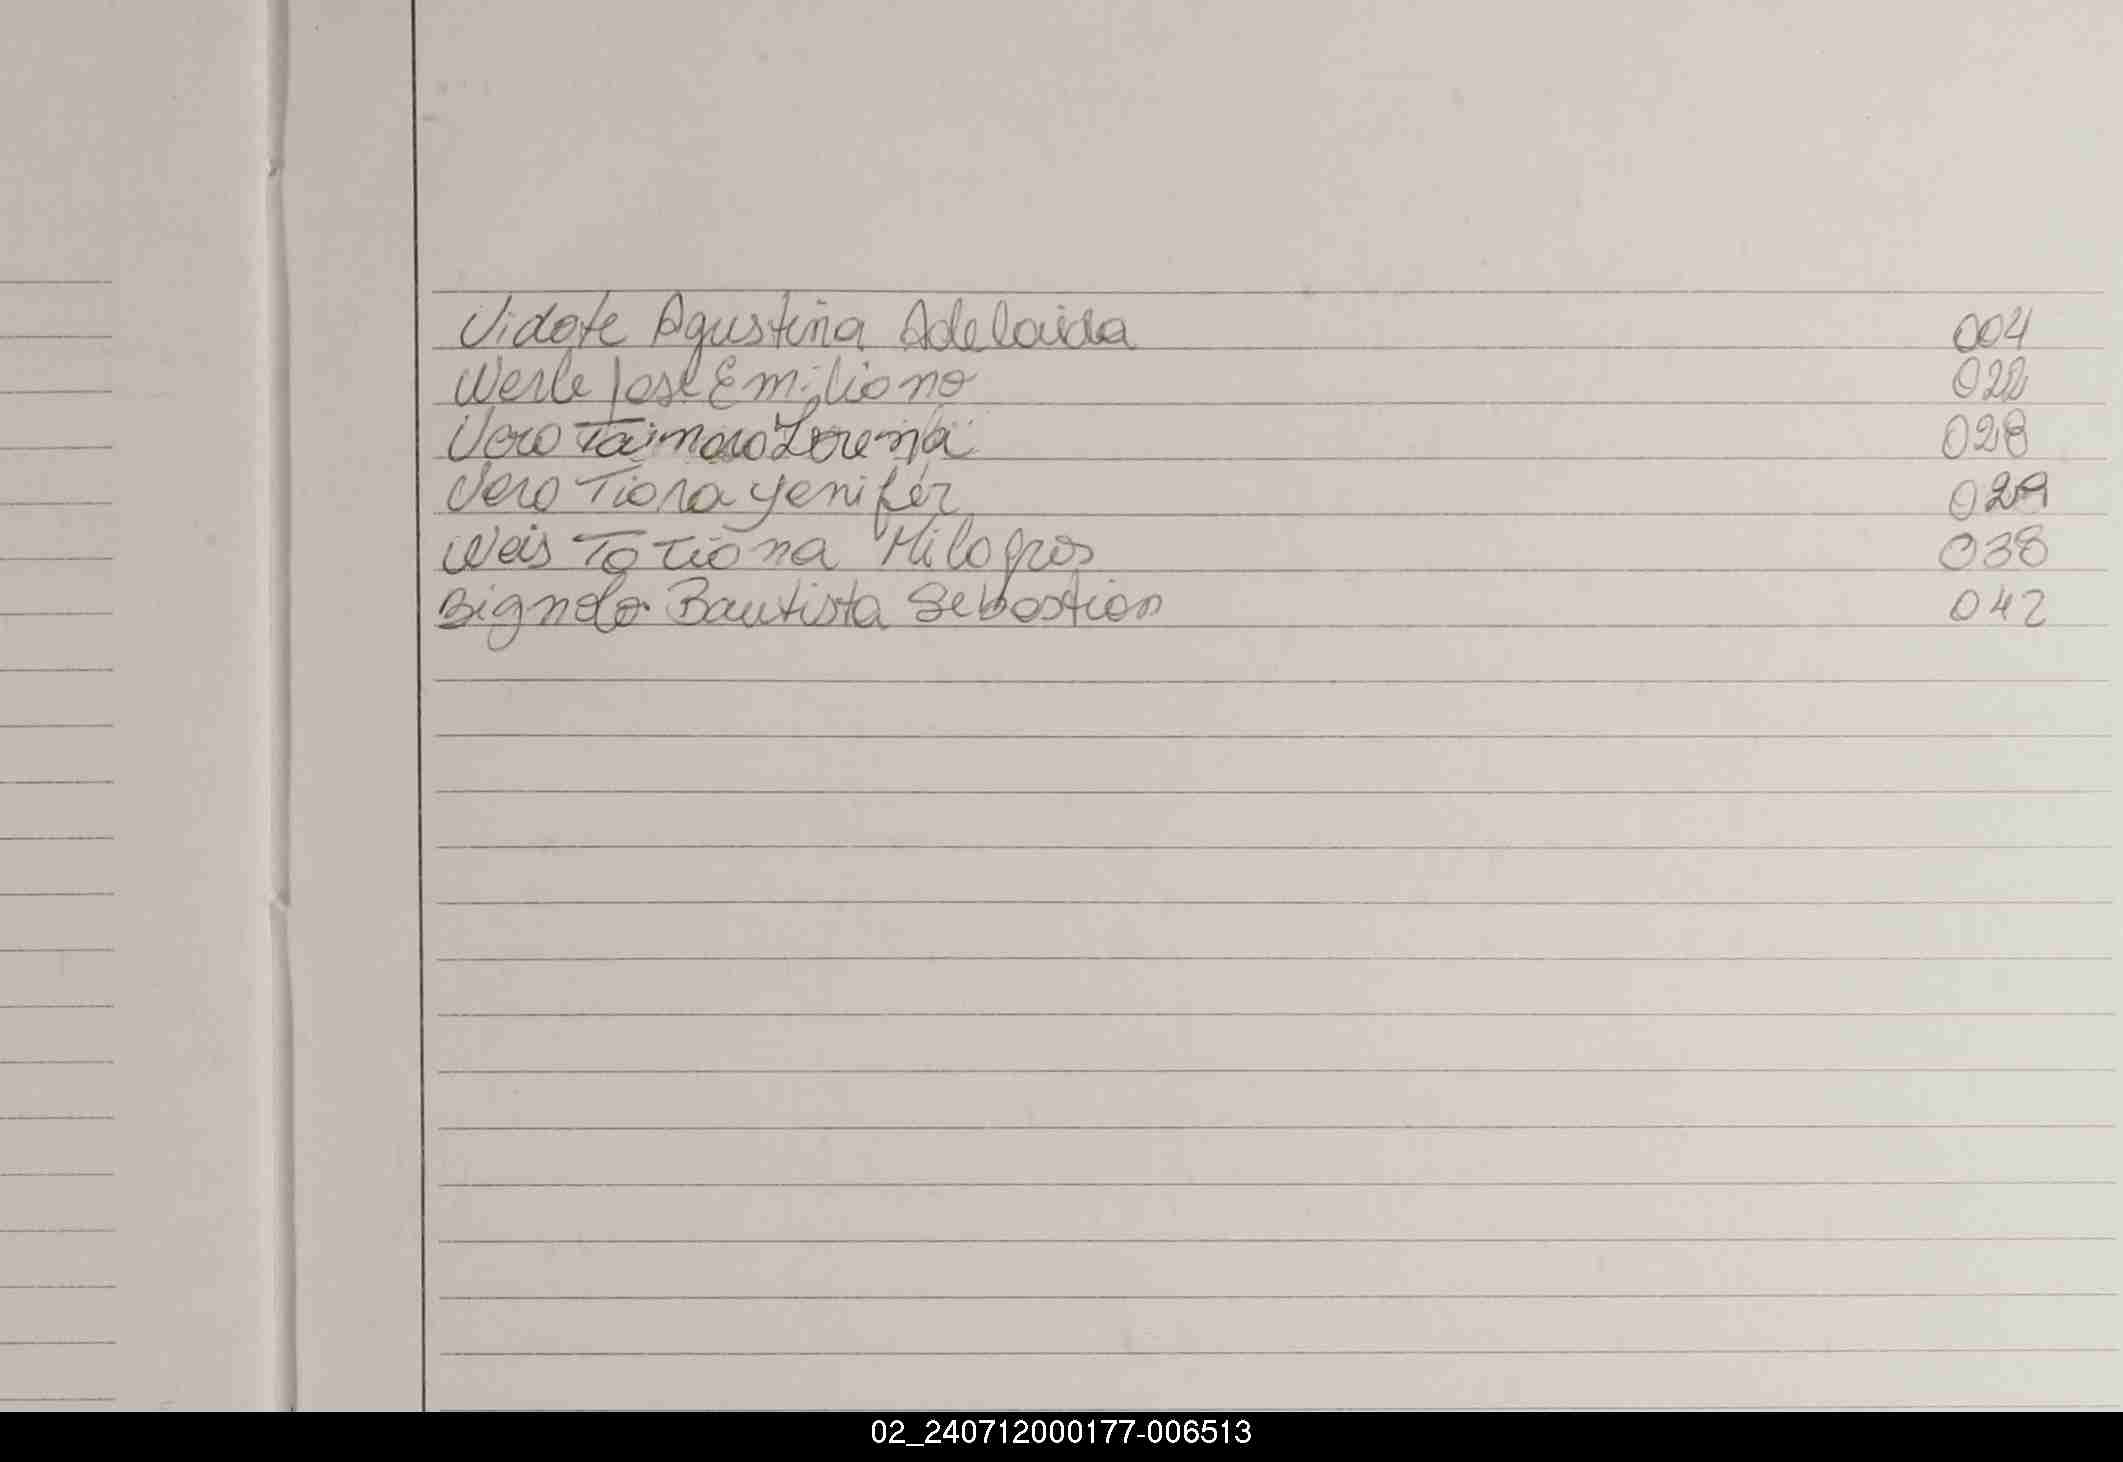 Vidote Agustina Adelaida 004
Werle Jose Emiliano 022
Vero Taimara Lorena 028
Vero Tiara Yenifer 029
Weis Tatiana Milagros 038
Bignolo Bautista Sebastian 042
02_240712000177-006513